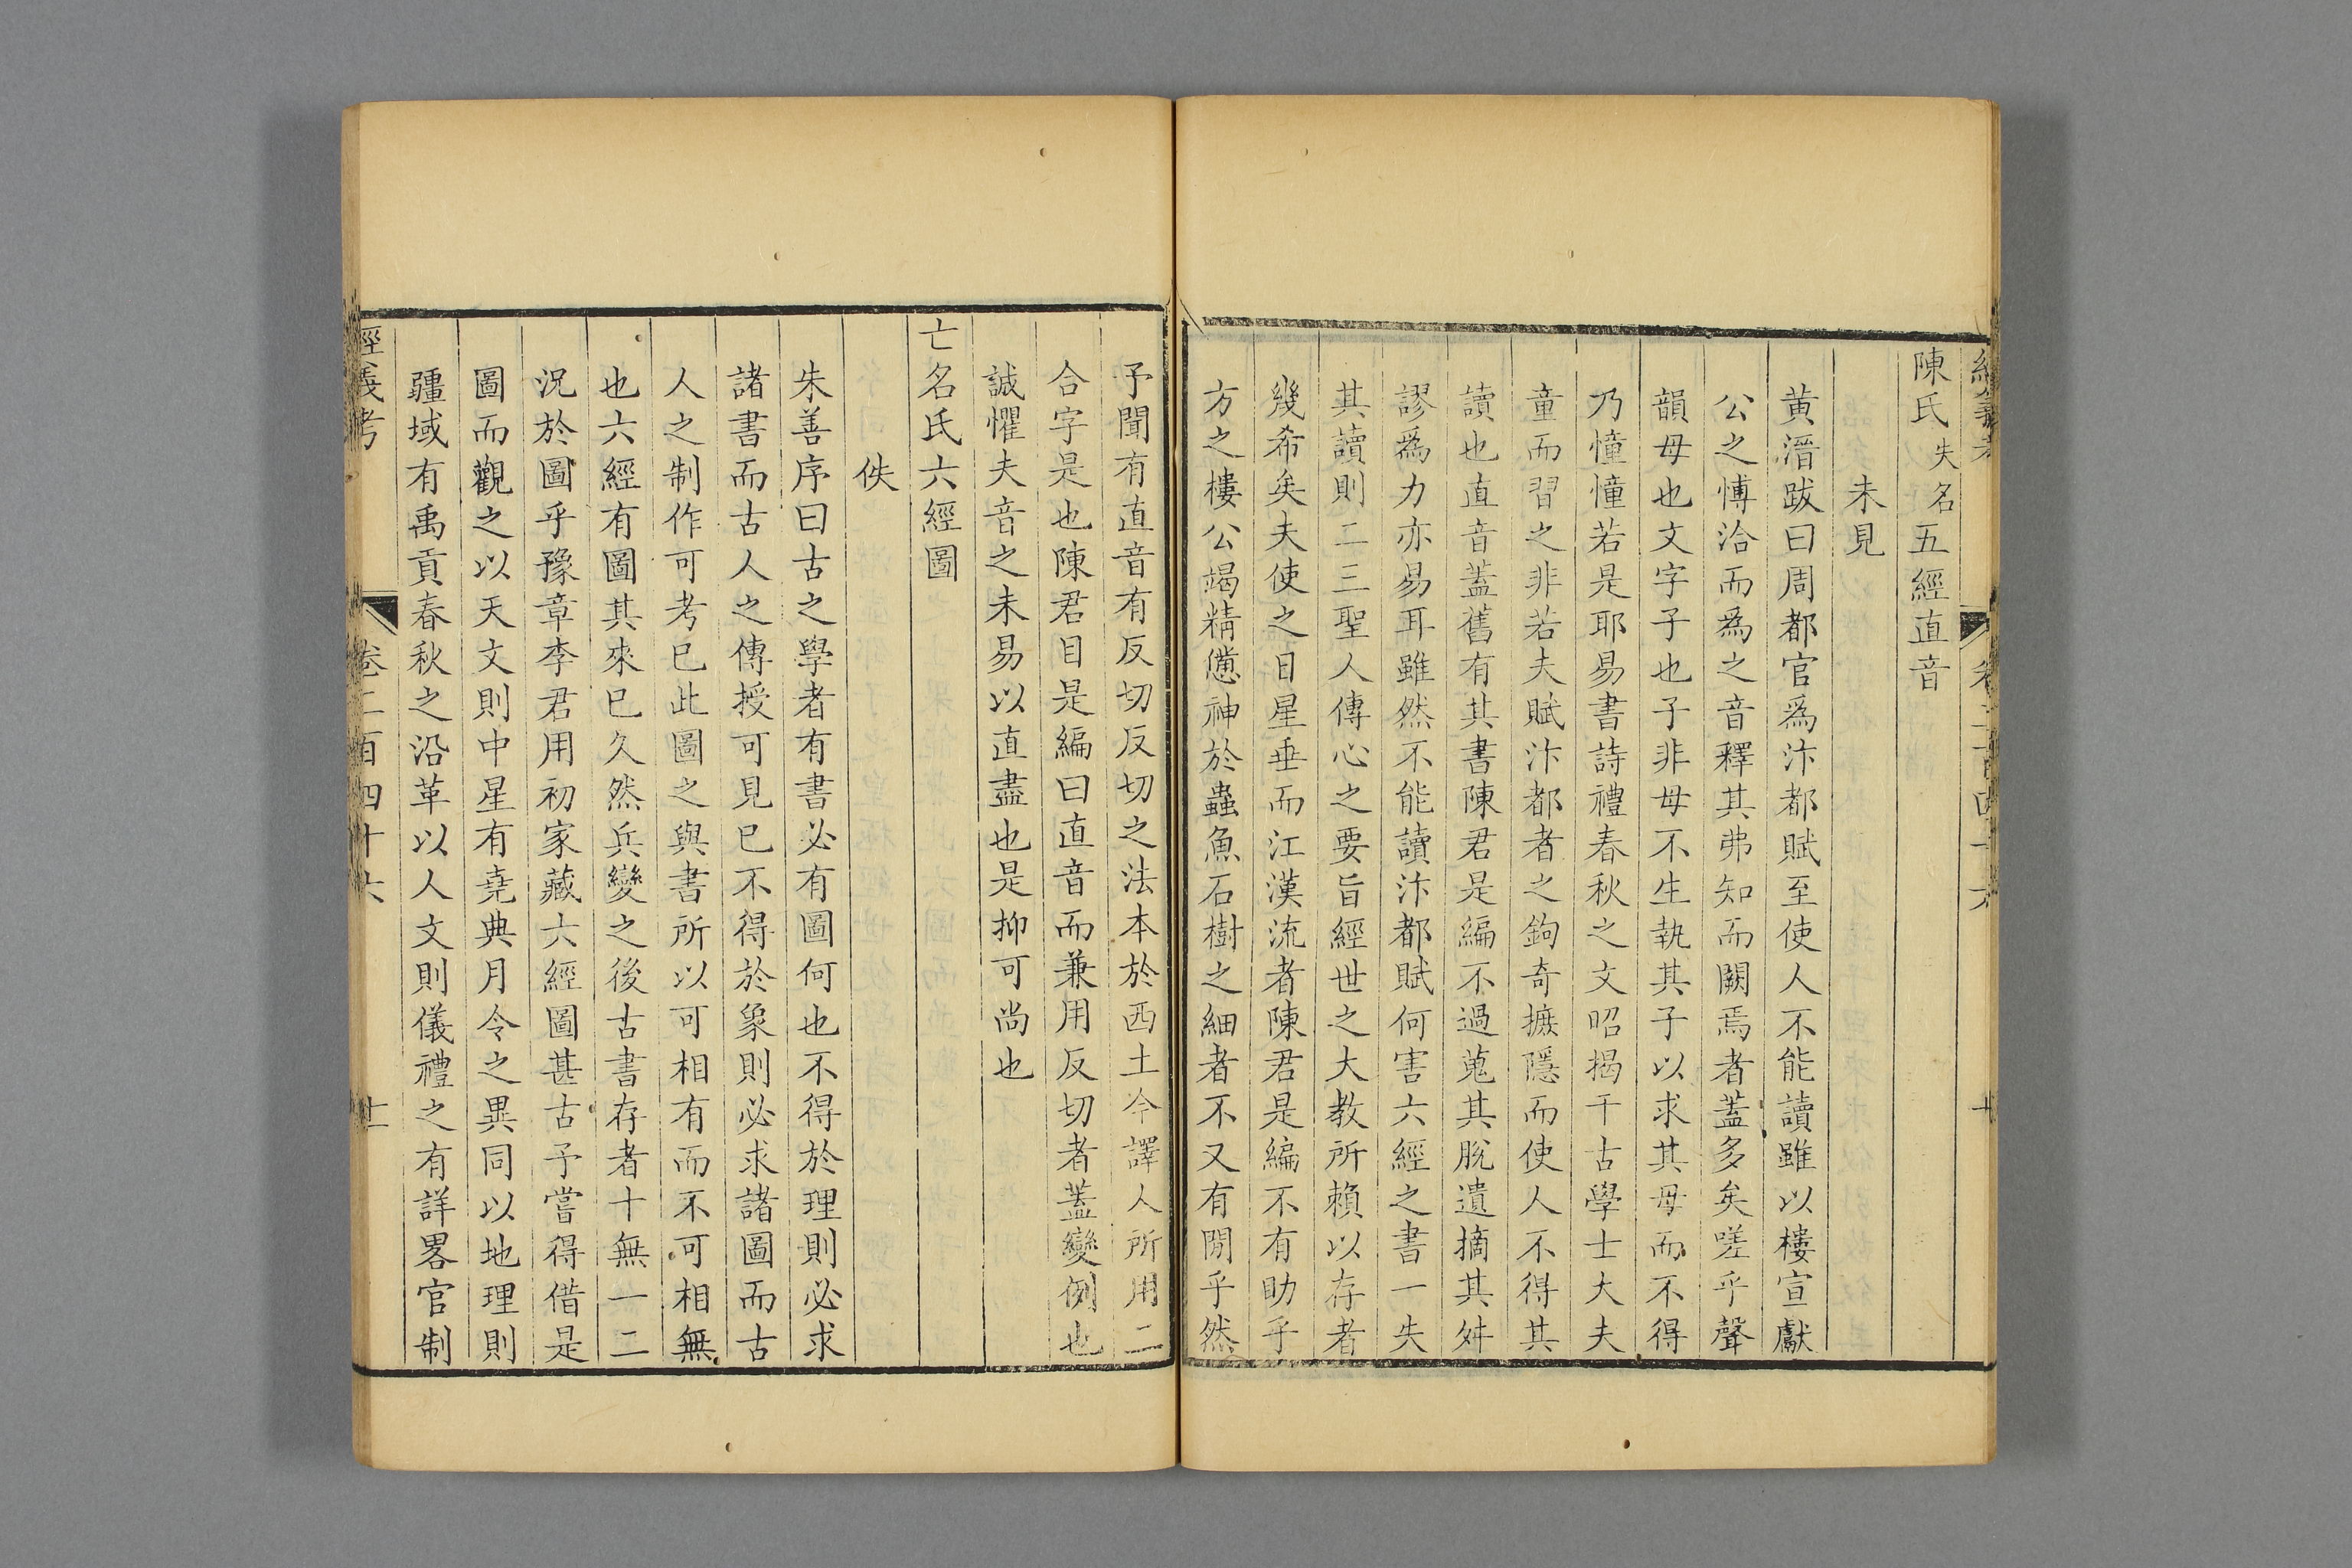 陳氏失名五經直音
未見
黄溍跋曰周都官爲汴都賦至使人不能讀雖以樓宣獻
公之愽洽而爲之音釋其弗知而闕焉者蓋多矣嗟乎聲
韻母也文字子也子非母不生執其子以求其母而不得
乃憧憧若是耶易書詩禮春秋之文昭揭千古學士大夫
童而習之非若夫賦汴都者之鉤奇摭隱而使人不得其
讀也直音蓋舊有其書陳君是編不過蒐其脫遺摘其舛
謬爲力亦易耳雖然不能讀汴都賦何害六經之書一失
其讀則二三聖人傳心之要旨經世之大教所賴以存者
幾希矣夫使之日星垂而江漢流者陳君是編不有助乎
方之樓公竭精憊神於蟲魚石樹之細者不又有閒乎然
予聞有直音有反切反切之法本於西土今譯人所用二
合字是也陳君目是編曰直音而兼用反切者蓋變例也
誠懼夫音之未易以直盡也是抑可尚也
亡名氏六經圖
佚
朱善序曰古之學者有書必有圖何也不得於理則必求
諸書而古人之傳授可見已不得於象則必求諸圖而古
人之制作可考已此圖之與書所以可相有而不可相無
也六經有圖其來已久然兵變之後古書存者十無一二
況於圖乎豫章李君用初家藏六經圖甚古予嘗得借是
圖而觀之以天文則中星有堯典月令之異同以地理則
疆域有禹貢春秋之沿革以人文則儀禮之有詳畧官制
經義考 卷二百四十六